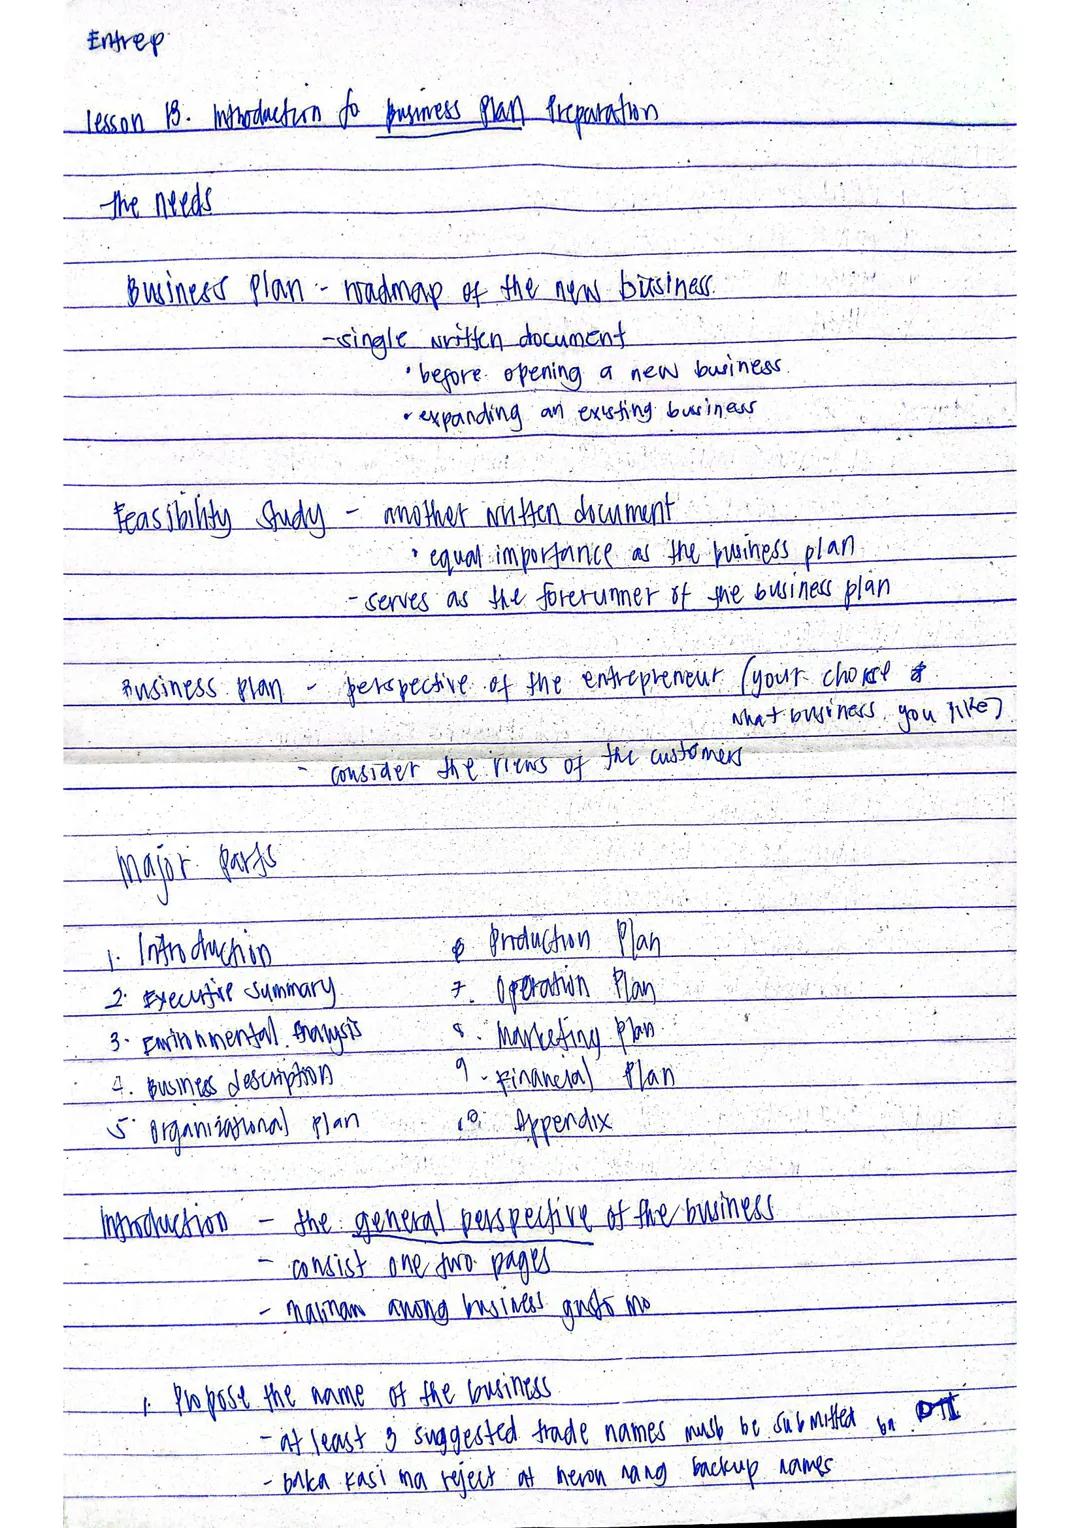 Entrep
Lesson 13. Introduction to Business Plan Preparation
the needs
Business plan - roadmap of the new business.
- single written document
• before opening a new business
• expanding an existing business
Feasibility Study - another written document
• equal importance as the business plan
- serves as the forerunner of the business plan
Business plan - perspective of the entrepreneur (your choice
what business you like)
- consider the views of the customers
Major parts
1. Introduction
2. Executive summary
3. Environmental Analysis
4. Business description
5. Organizational plan
6 Production Plan
7. Operation Plan
8. Marketing Plan
9. Financial Plan
10. Appendix
Introduction - the general perspective of the business
- consist one two pages
- malinaw anong business gusto mo
1. Propose the name of the business
- at least 3 suggested trade names must be submitted on DTI
- baka kasi ma reject at meron nang backup names